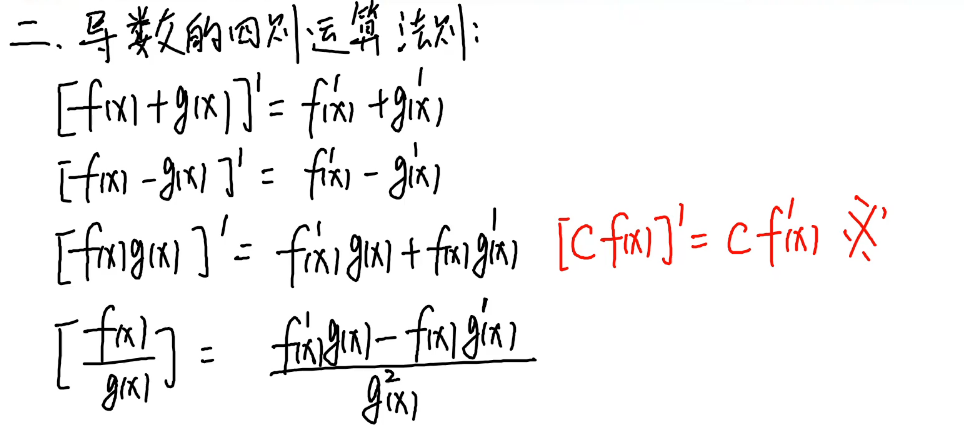 二、导数的四则运算法则:
[f(x)+g(x)]'= f'(x)+g'(x)
[f(x)-g(x)]'= f'(x)-g'(x)
[f(x)g(x)]'= f'(x)g(x)+f(x)g'(x) [C f(x)]'= C f'(x) ※
[f(x)/g(x)] = (f'(x)g(x)-f(x)g'(x))/g²(x)